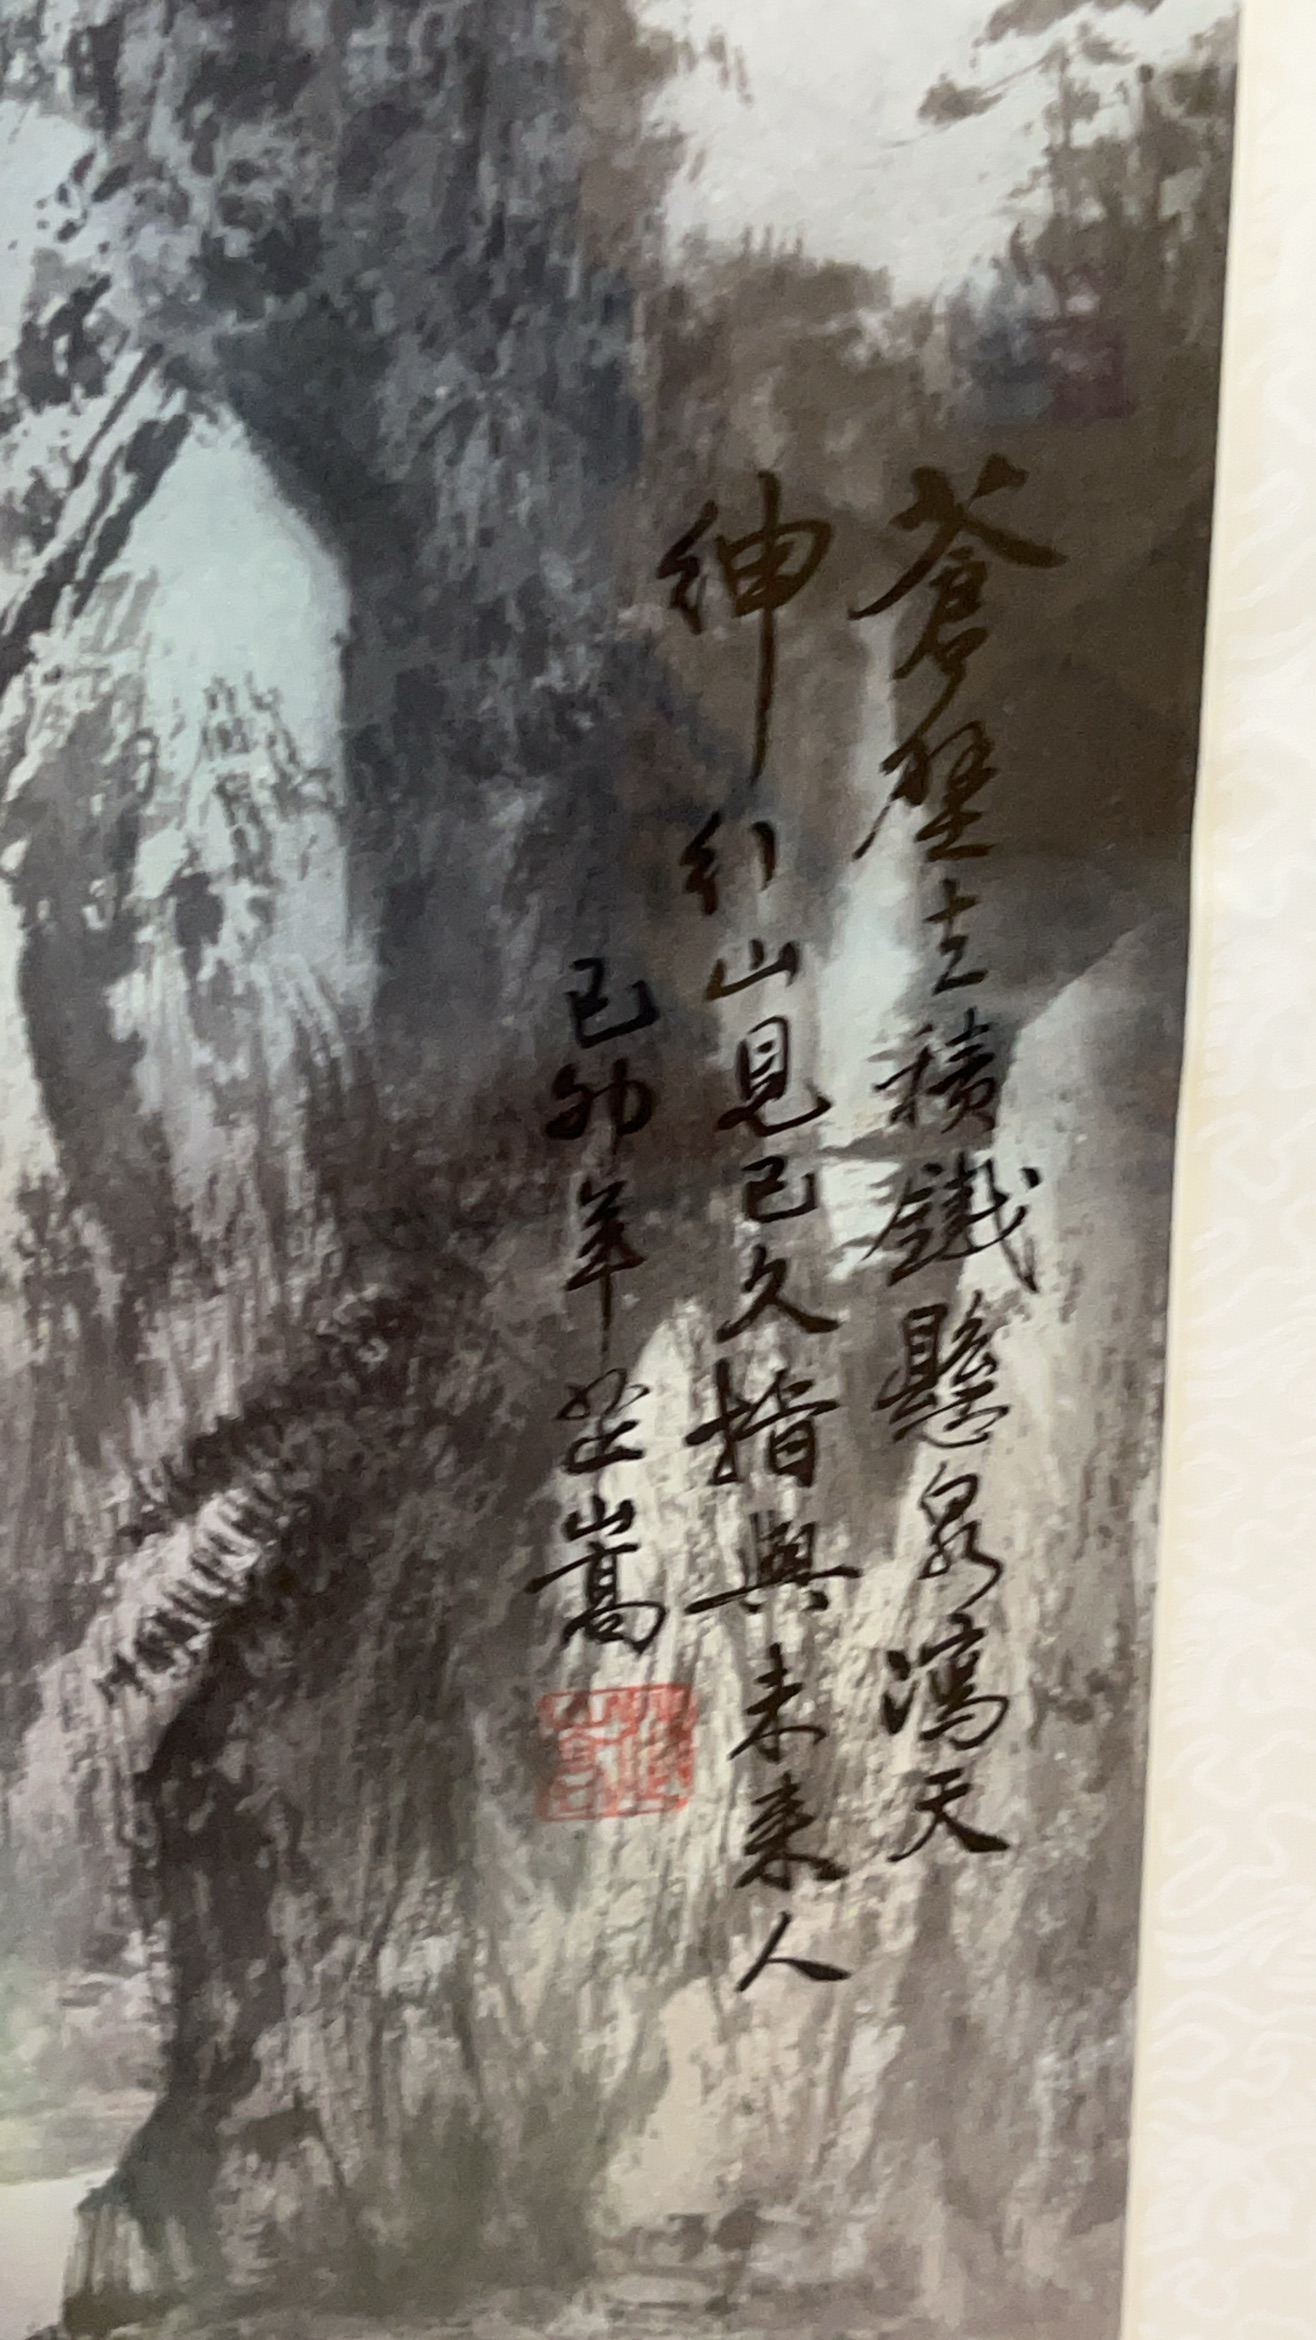 蒼壁立積鐵懸泉瀉天
紳行山見已久指與未來人
己卯年嵩